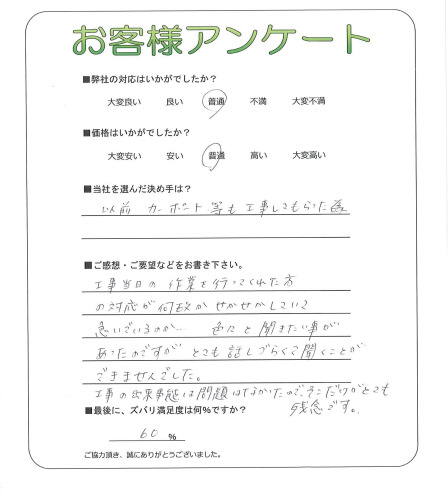 お客様アンケート
■弊社の対応はいかがでしたか?
大変良い 良い 普通 不満 大変不満
■価格はいかがでしたか?
大変安い 安い 普通 高い 大変高い
■当社を選んだ決め手は?
以前 カーポート等も工事してもらった為
■ご感想・ご要望などをお書き下さい。
工事当日の作業を行ってくれた方
の対応が何故かせかせかしていて
急いでいるのか… 色々と聞きたい事が
あったのですがとても話しづらくて聞くことが
できませんでした。
工事の出来事態は問題はなかったので、そこだけがとても
残念です。
■最後に、ズバリ満足度は何%ですか?
60 %
ご協力頂き、誠にありがとうございました。